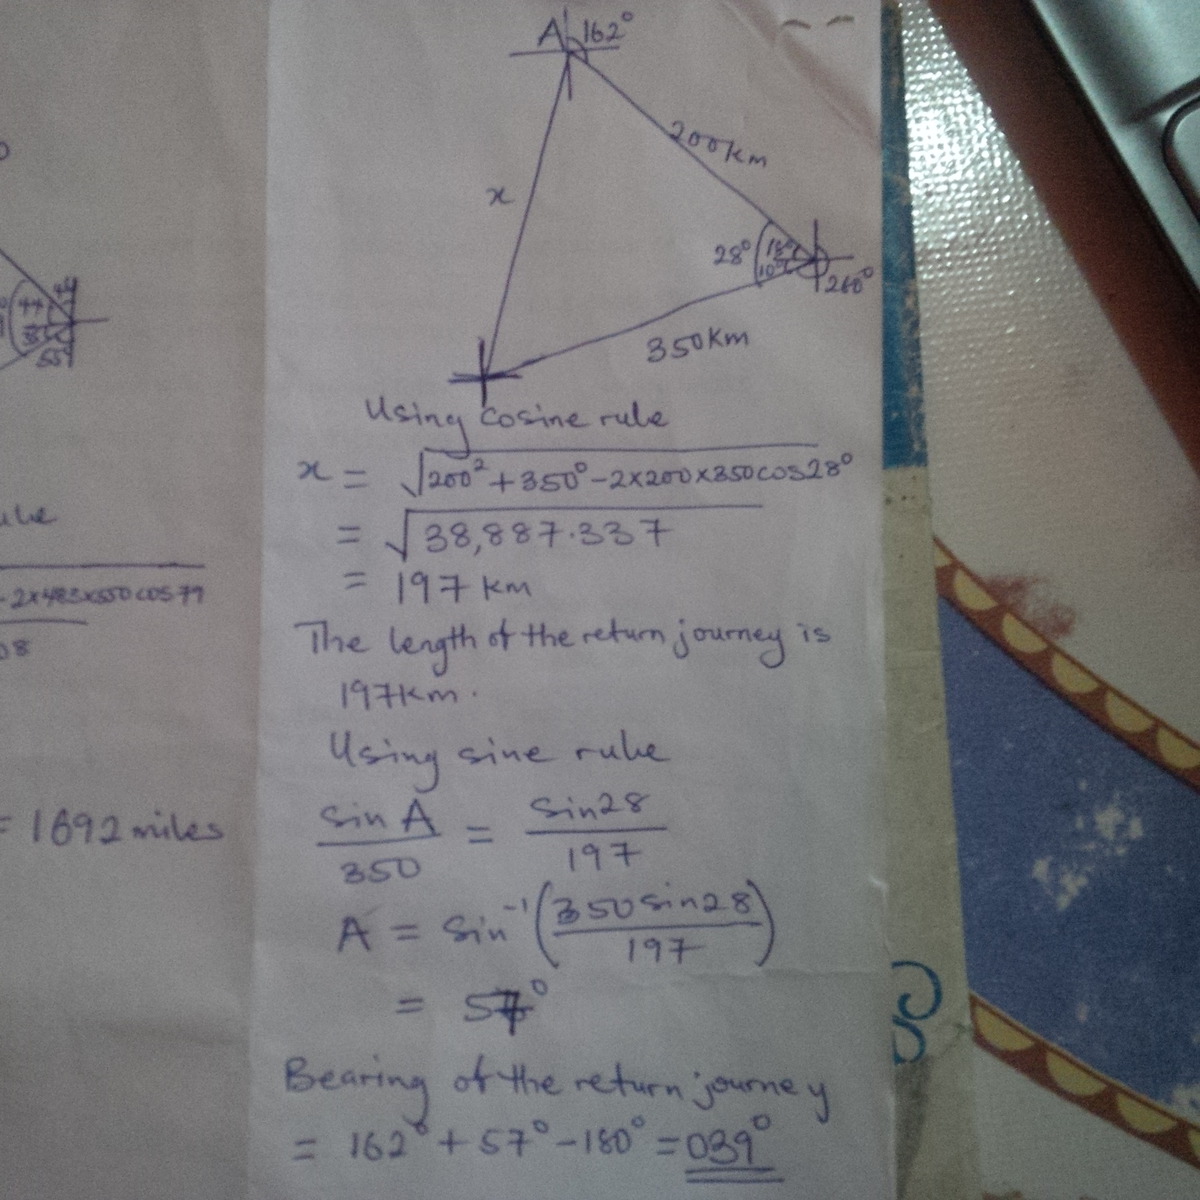 A 162°
200km
x
28° 18° 10°
260°
350km
44 46
35
55
Using cosine rule
x = √200² + 350° - 2×200×350cos28°
= √38,887.337
= 197 km
The length of the return journey is
197km.
Using sine rule
sin A / 350 = sin28 / 197
A = sin⁻¹(350sin28 / 197)
= 57°
Bearing of the return journey
= 162° + 57° - 180° = 039°
- 2×483×550cos79
08
= 1692 miles